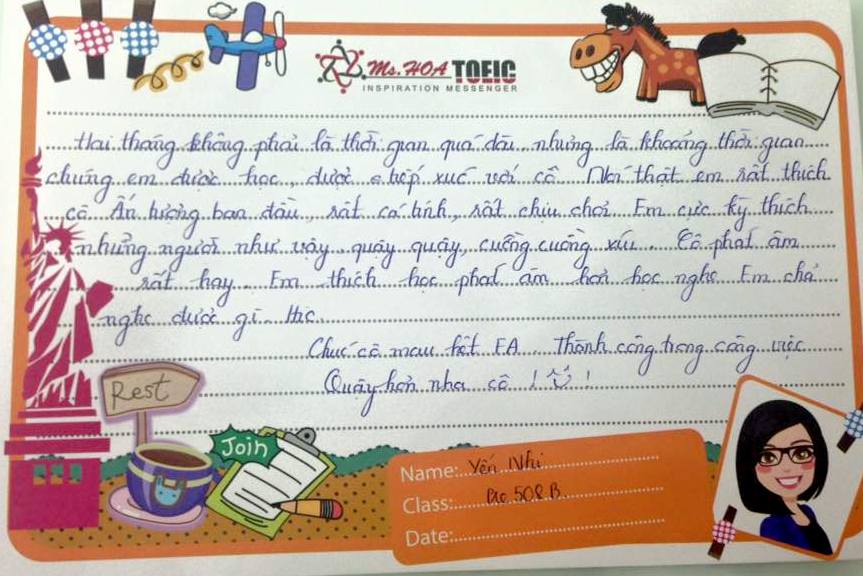 Ms.HOA TOEIC
INSPIRATION MESSENGER
Hai tháng không phải là thời gian quá dài nhưng là khoảng thời gian
chúng em được học, được tiếp xúc với cô. Nói thật em rất thích
cô. Ấn tượng ban đầu, rất cá tính, rất chịu chơi. Em cực kỳ thích
những người như vậy, quậy quậy, cuồng cuồng xíu. Cô phát âm
rất hay. Em thích học phát âm hơn học nghe. Em chả
nghe được gì. Hic.
Chúc cô mau hết FA. Thành công trong công việc
Quậy hơn nha cô ! !
Rest
Join
Name: Yến Nhi
Class: 508B
Date: